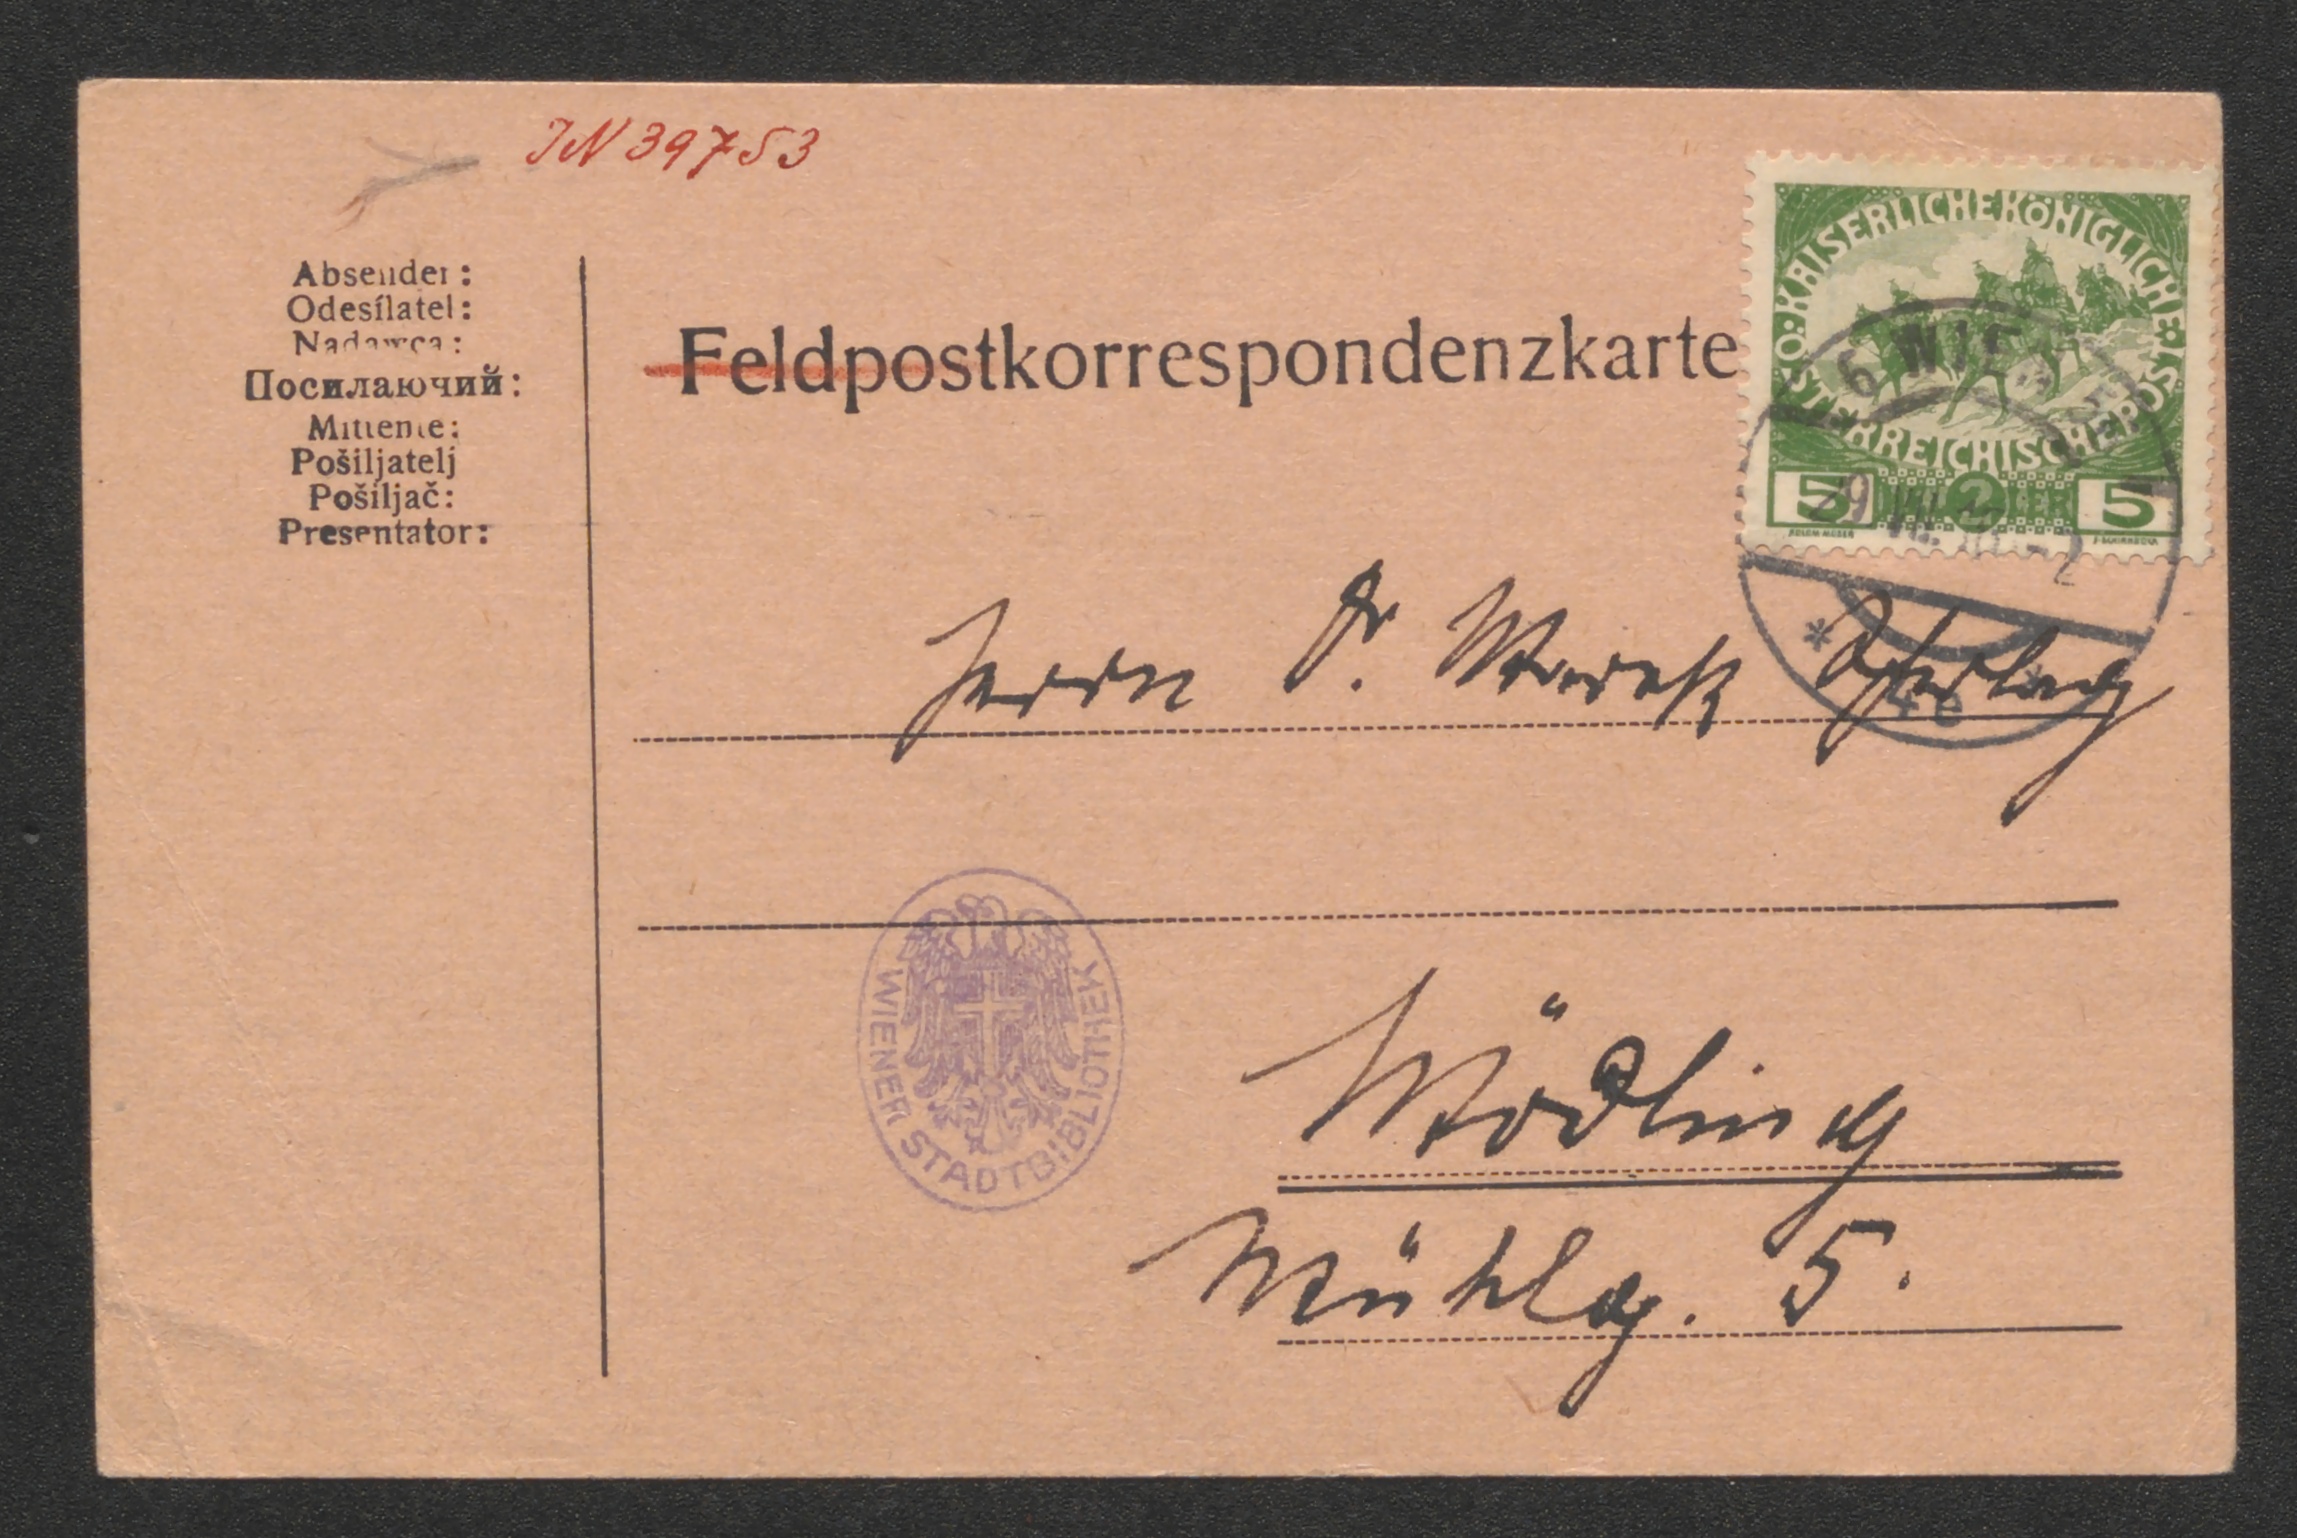 IN 39753
Absender:
Odesílatel:
Nadawca:
Посилаючий:
Mittente:
Pošiljatelj
Pošiljač:
Presentator:
Feldpostkorrespondenzkarte
KAISERLICHEKÖNIGLICHE
ÖSTERREICHISCHEPOST
5 2 5
KOLOM MOSER
6 WIEN
29 VII
* *
Herrn Dr.
WIENER STADTBIBLIOTHEK
Mödling
Mühlg. 5.